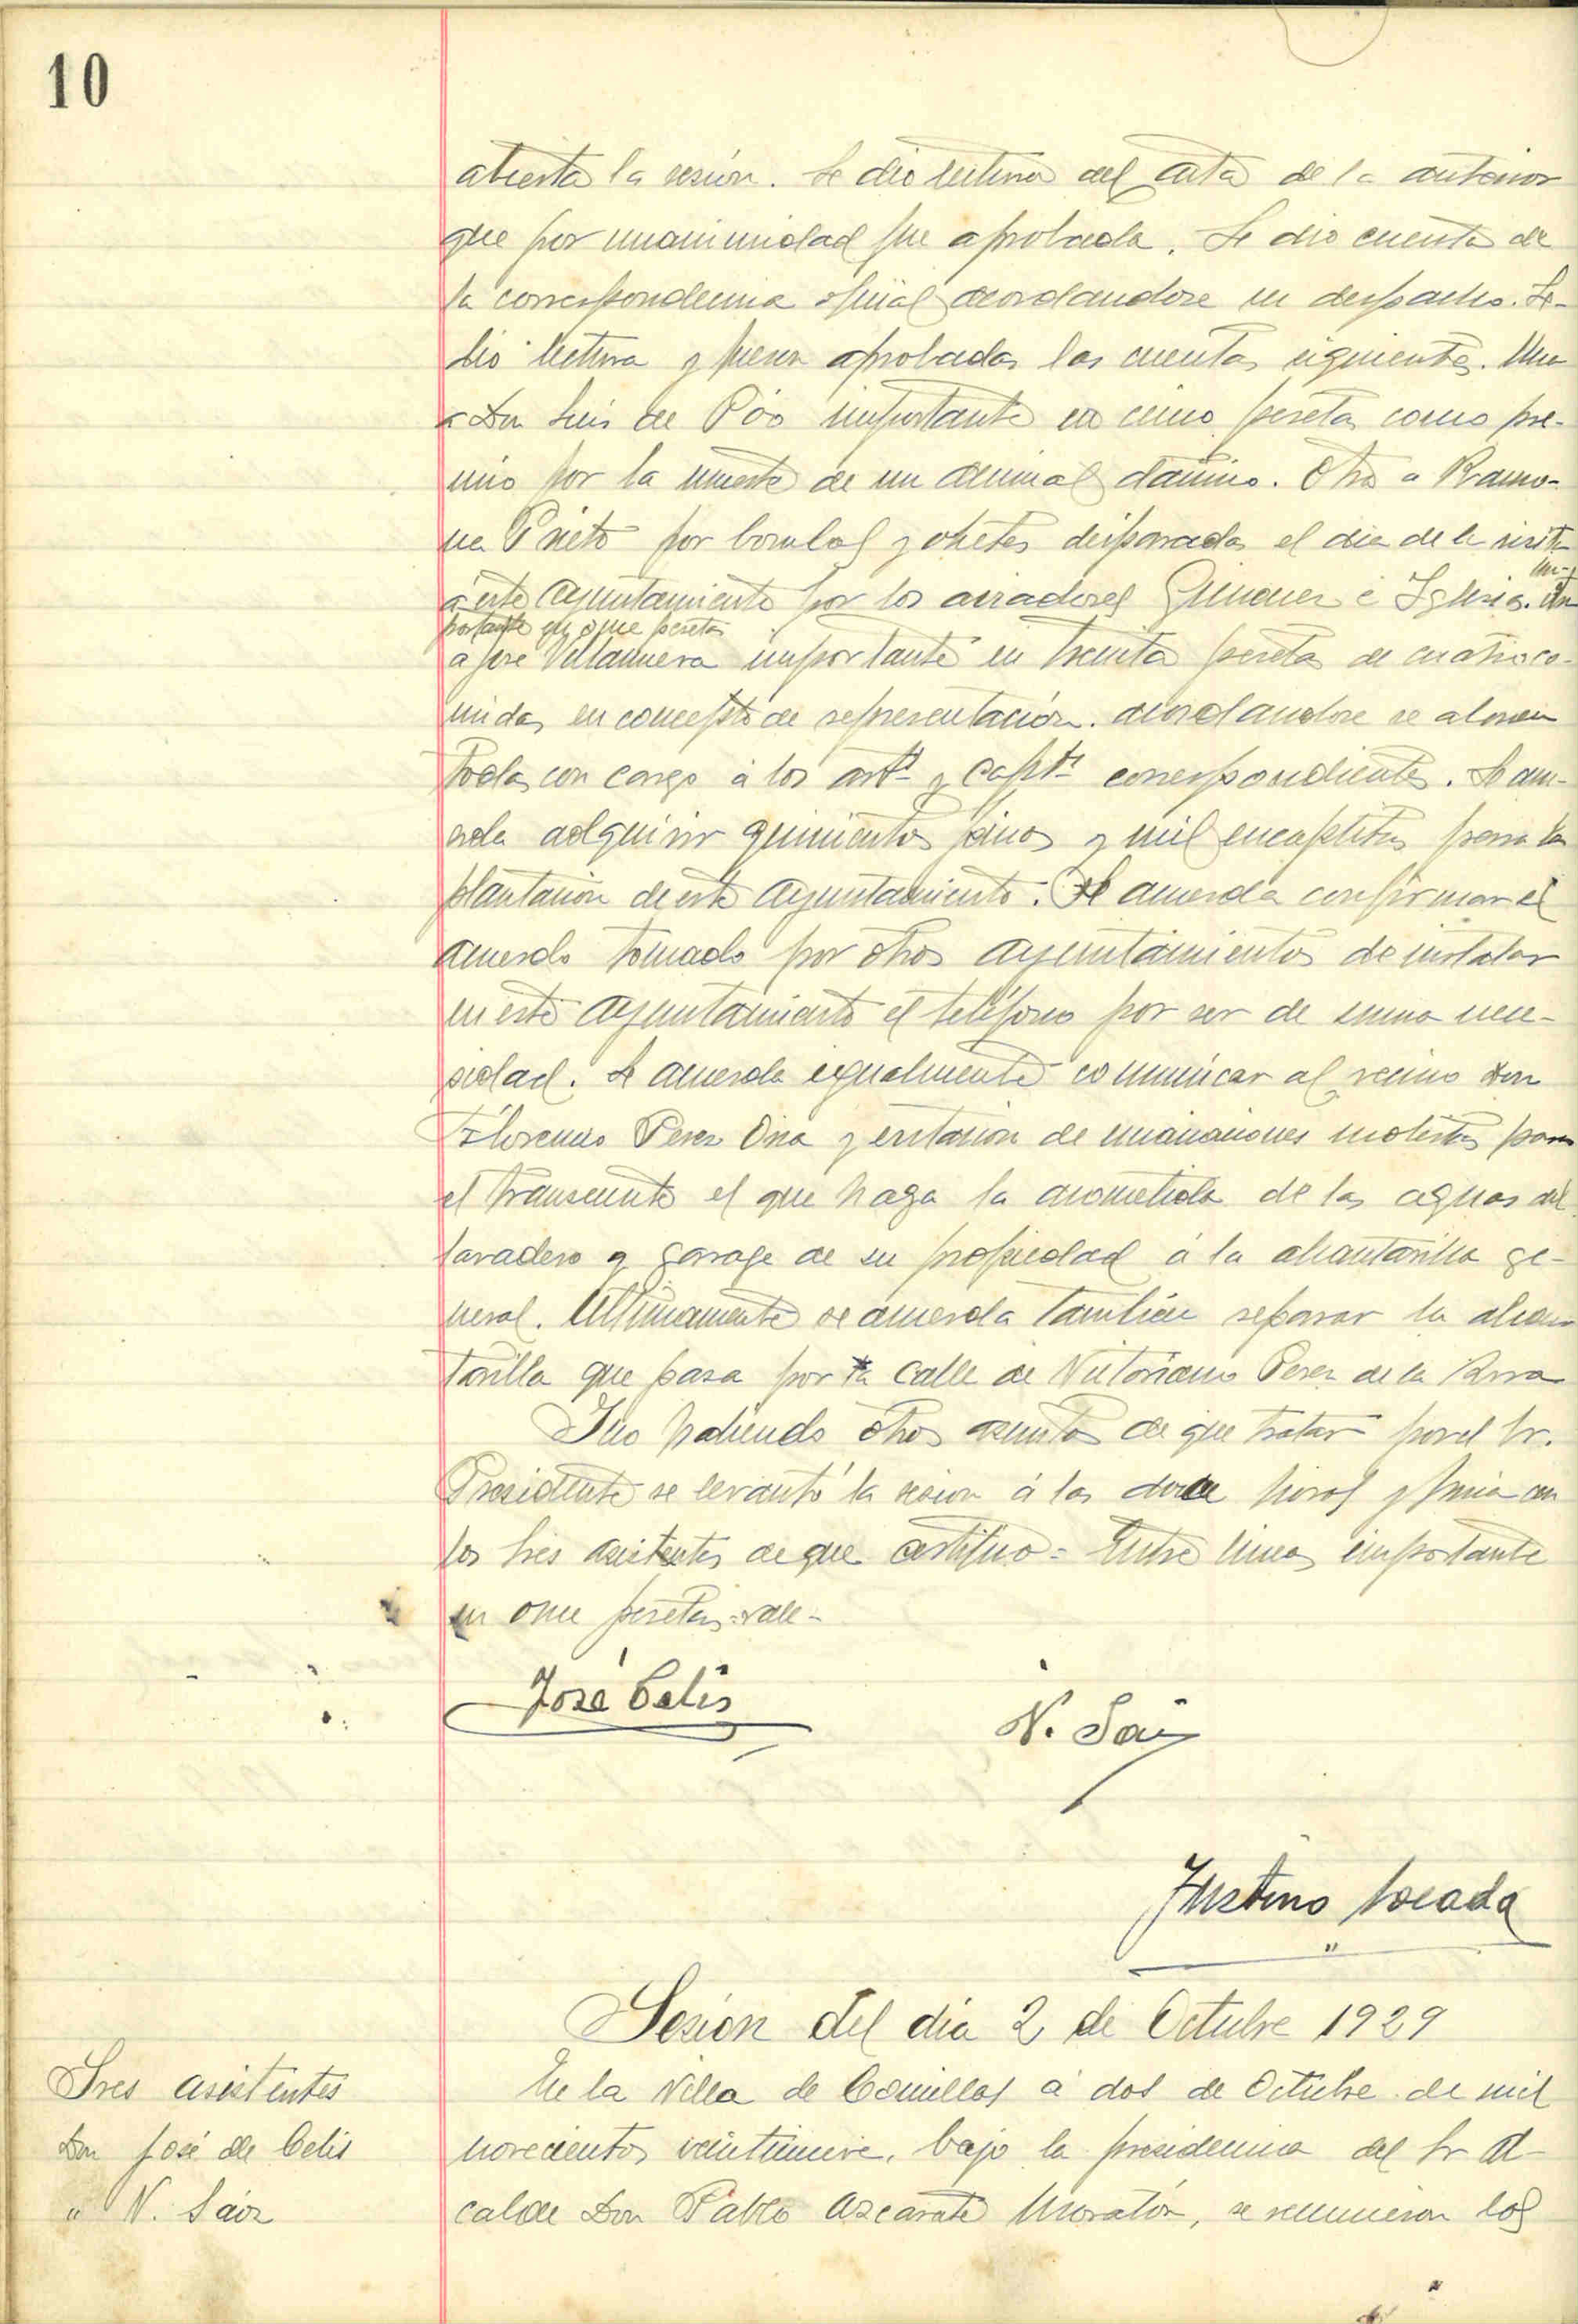 10
abierta la sesión. Se dio lectura del acta de la anterior
que por unanimidad fue aprobada. Se dio cuenta de
la correspondencia oficial acordandose su despacho. Se
dio lectura y fueron aprobadas las cuentas siguientes. Una
a Don Luis de Póo importante en cinco pesetas como pre-
mio por la muerte de un animal dañino. Otra a Ramo-
na Prieto por bombas y ohetes disparados el dia de la visita
á este Ayuntamiento por los aviadores Gimenez é Iglesias. im-
portante en once pesetas
a José Villanueva importante en treinta pesetas de cuatro co-
midas en concepto de representación. acordandose se abonen
todas con cargo á los artº y Captº correspondientes. Se acu-
erda adquirir quinientos pinos y mil eucaplitus para la
plantación de este Ayuntamiento. Se acuerda confirmar el
acuerdo tomado por otros Ayuntamientos de instalar
en este Ayuntamiento el teléfono por ser de suma nece-
sidad. Se acuerda igualmente comunicar al vecino Don
Florencio Perez Oria y evitacion de emanaciones molestas para
el transeunte el que haga la acometida de las aguas del
lavadero y garage de su propiedad á la alcantarilla ge-
neral. Ultimamente se acuerda tambien reparar la alcan-
tarilla que pasa por la calle de Victoriano Perez de la Riva
Y no habiendo otros asuntos de que tratar por el Sr.
Presidente se levantó la sesion á las doce horas y firma con
los Sres asistentes de que certifico = Entre lineas importante
en once pesetas = vale -
José Celis
N. Saiz
Justino Locada
Sesión del dia 2 de Octubre 1929
Sres asistentes
Don José de Celis
" N. Sáiz
En la Villa de Comillas á dos de Octubre de mil
novecientos veintinueve, bajo la presidencia del Sr Al-
calde Don Pablo Azcarate Moratón, se reunieron los